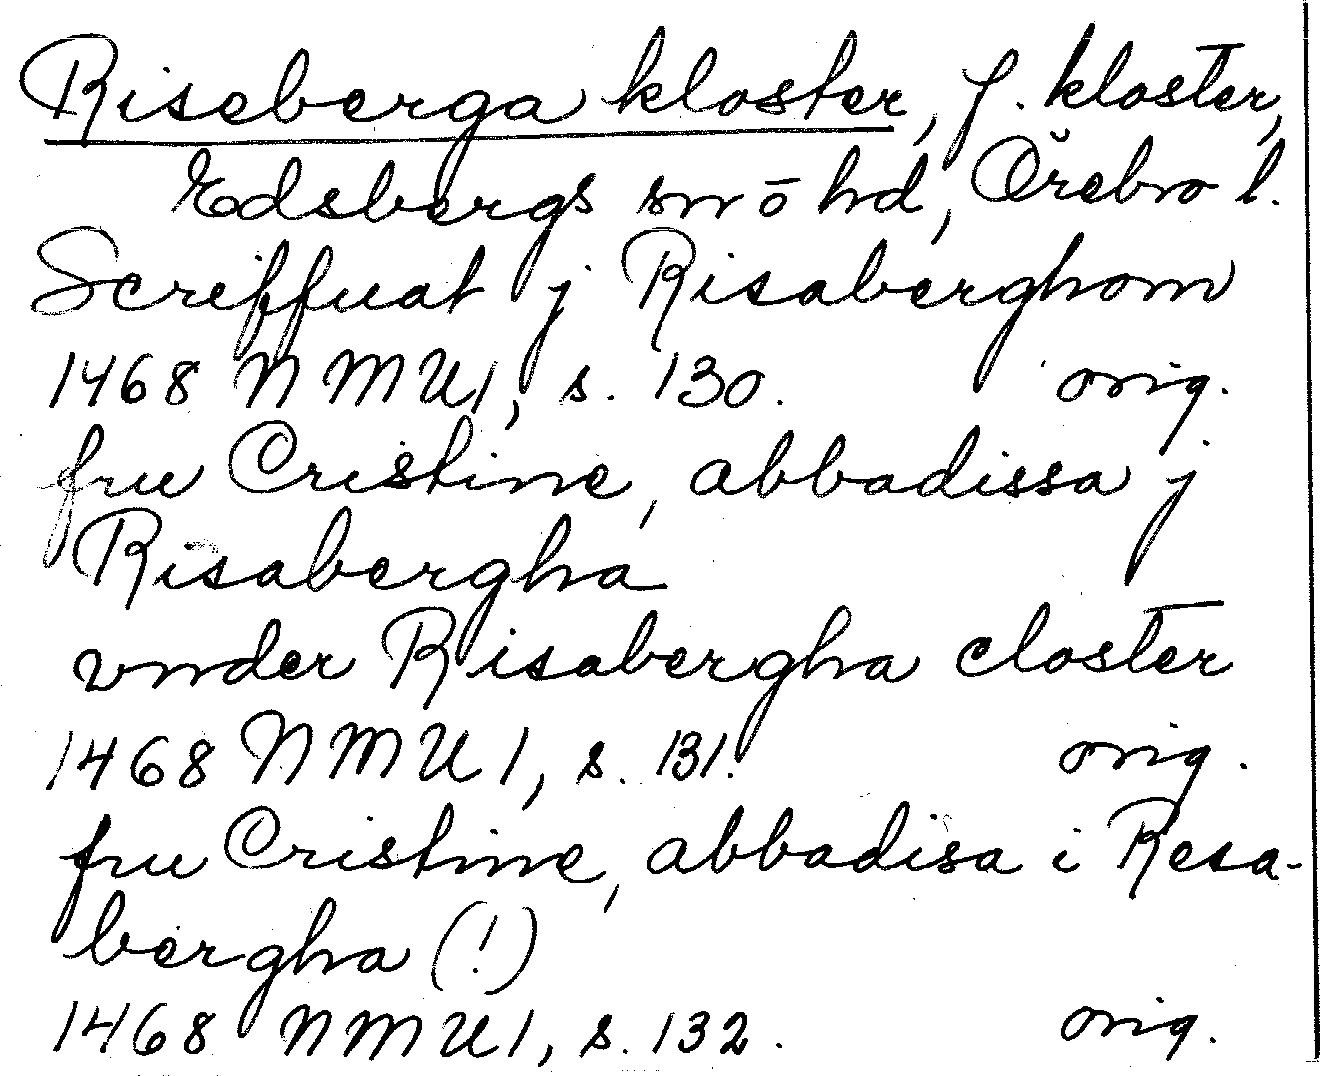 Riseberga kloster, f. kloster,
Edsbergs sn o hd, Örebro l.
Screffuat j Risaberghom
1468 NMU1, s. 130. orig.
fru Cristine, abbadissa j
Risabergha
vnder Risabergha closter
1468 NMU1, s. 131. orig.
fru Cristine, abbadisa i Resa-
bergha (!)
1468 NMU1, s. 132. orig.